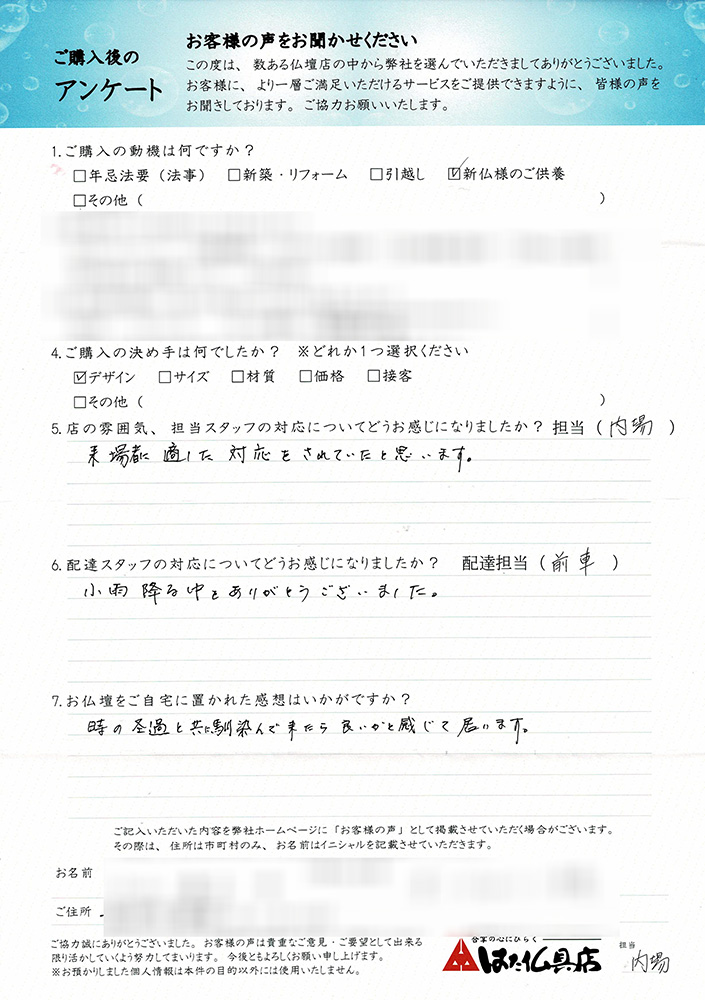 ご購入後の
アンケート
お客様の声をお聞かせください
この度は、数ある仏壇店の中から弊社を選んでいただきましてありがとうございました。
お客様に、より一層ご満足いただけるサービスをご提供できますように、皆様の声を
お聞きしております。ご協力お願いいたします。
1.ご購入の動機は何ですか？
□年忌法要（法事） □新築・リフォーム □引越し ☑新仏様のご供養
□その他（ ）
4.ご購入の決め手は何でしたか？ ※どれか1つ選択ください
☑デザイン □サイズ □材質 □価格 □接客
□その他（ ）
5.店の雰囲気、担当スタッフの対応についてどうお感じになりましたか？担当（内場）
来場者に適した対応をされていたと思います。
6.配達スタッフの対応についてどうお感じになりましたか？ 配達担当（前車）
小雨降る中をありがとうございました。
7.お仏壇をご自宅に置かれた感想はいかがですか？
時の圣過と共に馴染んで来たら良いかと感じて居います。
ご記入いただいた内容を弊社ホームページに「お客様の声」として掲載させていただく場合がございます。
その際は、住所は市町村のみ、お名前はイニシャルを記載させていただきます。
お名前
ご住所
ご協力誠にありがとうございました。お客様の声は貴重なご意見・ご要望として出来る
限り活かしていくよう努力してまいります。今後ともよろしくお願い申し上げます。
※お預かりしました個人情報は本件の目的以外には使用いたしません。
合掌の心にひらく
はた仏具店
担当
内場